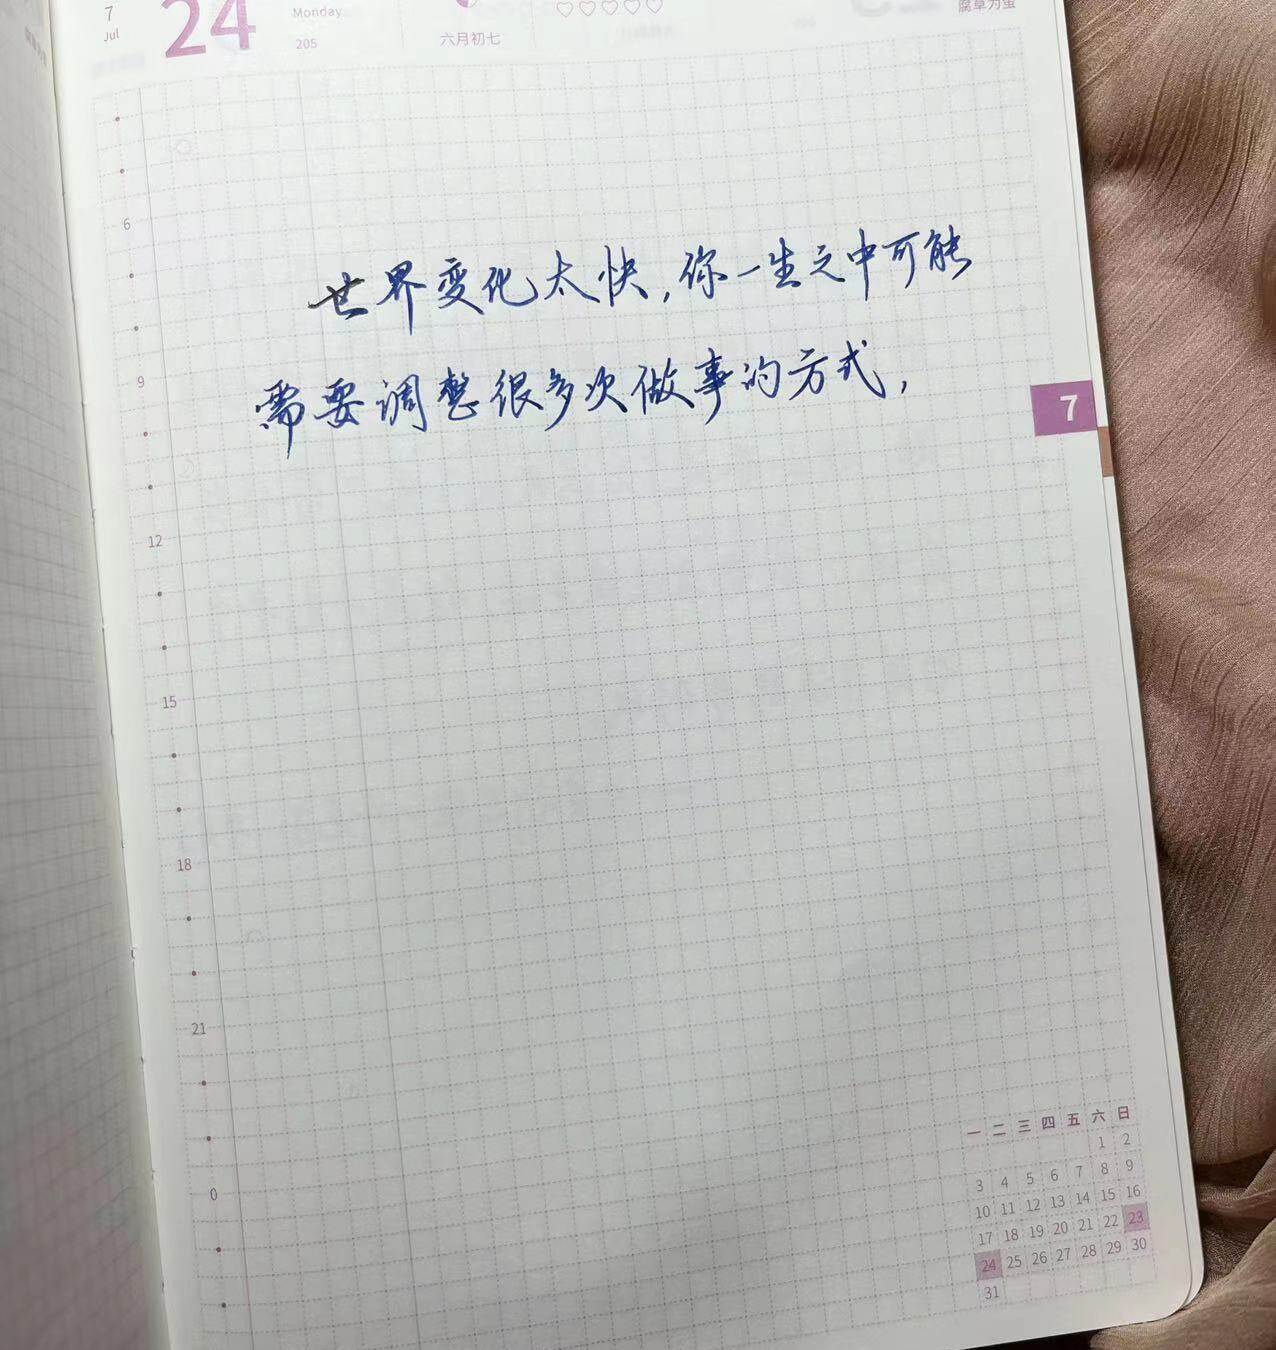 7
Jul
24
Monday
205
六月初七
腐草为萤
6
世界变化太快,你一生之中可能
需要调整很多次做事的方式,
9
7
12
15
18
21
0
一 二 三 四 五 六 日
1 2
3 4 5 6 7 8 9
10 11 12 13 14 15 16
17 18 19 20 21 22 23
24 25 26 27 28 29 30
31